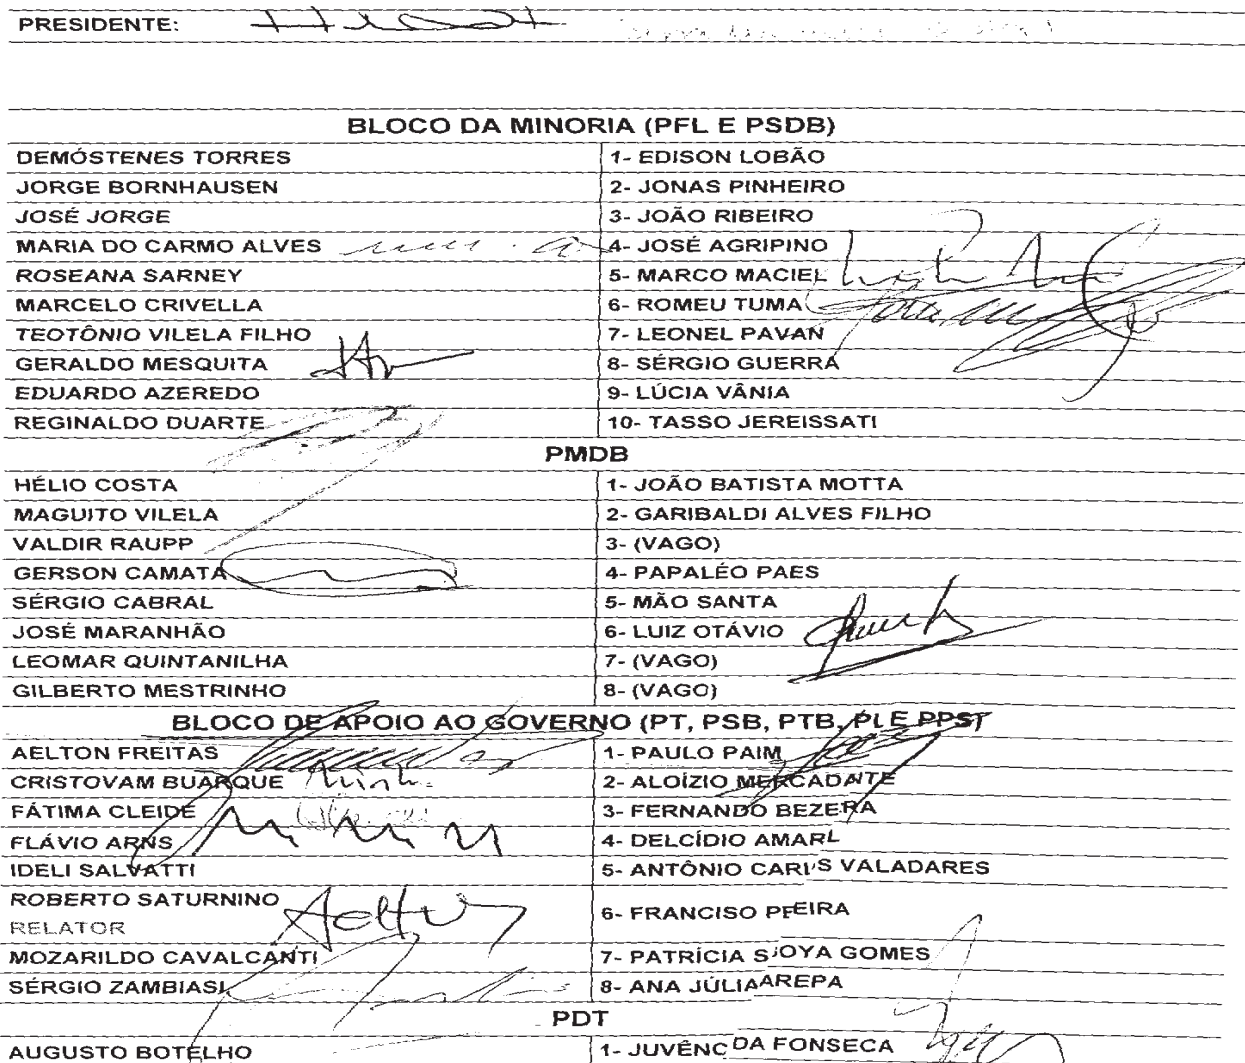 PRESIDENTE:
BLOCO DA MINORIA (PFL E PSDB)
DEMÓSTENES TORRES 1- EDISON LOBÃO
JORGE BORNHAUSEN 2- JONAS PINHEIRO
JOSÉ JORGE 3- JOÃO RIBEIRO
MARIA DO CARMO ALVES 4- JOSÉ AGRIPINO
ROSEANA SARNEY 5- MARCO MACIEL
MARCELO CRIVELLA 6- ROMEU TUMA
TEOTÔNIO VILELA FILHO 7- LEONEL PAVAN
GERALDO MESQUITA 8- SÉRGIO GUERRA
EDUARDO AZEREDO 9- LÚCIA VÂNIA
REGINALDO DUARTE 10- TASSO JEREISSATI
PMDB
HÉLIO COSTA 1- JOÃO BATISTA MOTTA
MAGUITO VILELA 2- GARIBALDI ALVES FILHO
VALDIR RAUPP 3- (VAGO)
GERSON CAMATA 4- PAPALÉO PAES
SÉRGIO CABRAL 5- MÃO SANTA
JOSÉ MARANHÃO 6- LUIZ OTÁVIO
LEOMAR QUINTANILHA 7- (VAGO)
GILBERTO MESTRINHO 8- (VAGO)
BLOCO DE APOIO AO GOVERNO (PT, PSB, PTB, PL E PPS)
AELTON FREITAS 1- PAULO PAIM
CRISTOVAM BUARQUE 2- ALOÍZIO MERCADANTE
FÁTIMA CLEIDE 3- FERNANDO BEZERA
FLÁVIO ARNS 4- DELCÍDIO AMARL
IDELI SALVATTI 5- ANTÔNIO CARLS VALADARES
ROBERTO SATURNINO
RELATOR 6- FRANCISO PEEIRA
MOZARILDO CAVALCANTI 7- PATRÍCIA SOYA GOMES
SÉRGIO ZAMBIASI 8- ANA JÚLIA AREPA
PDT
AUGUSTO BOTELHO 1- JUVÊNC DA FONSECA